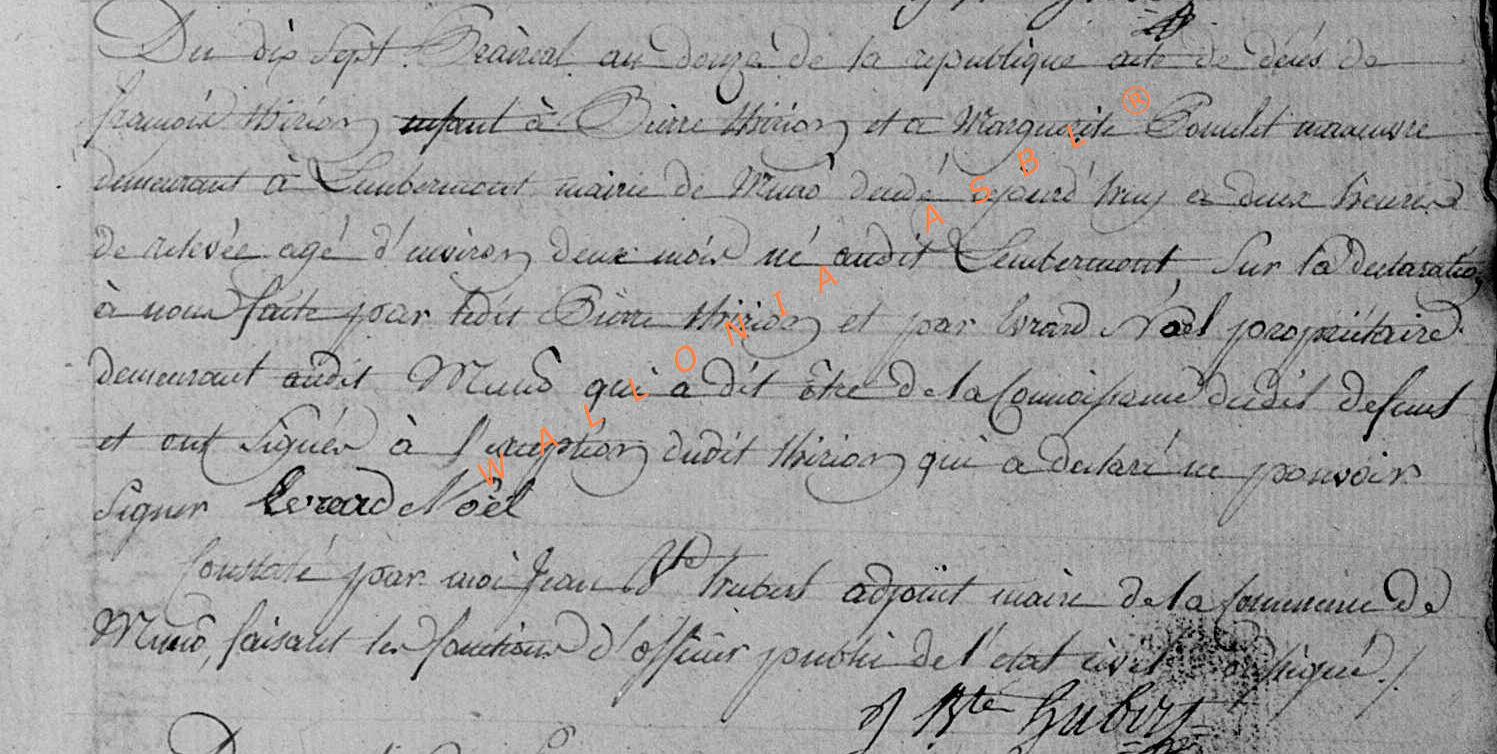 Du dix Sept Prairial an douze de la republique acte de décés de
françois thirion enfant à Pierre thirion et a Marguerite Poncelet manœuvre
demeurant à Lambermont mairie de Muno decedé ajourd'huy a deux heures
de relevée agé d'environ deux mois né audit Lambermont, Sur la declaration
à nous faite par ledit Pierre thirion et par Evrard Noël propriétaire
demeurant audit Muno qui a dit être de la Connoissance dudit defunt
et ont Signés à l'exception dudit thirion qui a declaré ne pouvoir
Signer Evrard Noël
Constaté par moi Jean Bte hubert adjoint maire de la Commune de
Muno, faisant les fonctions d'officier public de l'état civil Soussigné ./.
J Bte Hubert
WALLONIA ASBL ®